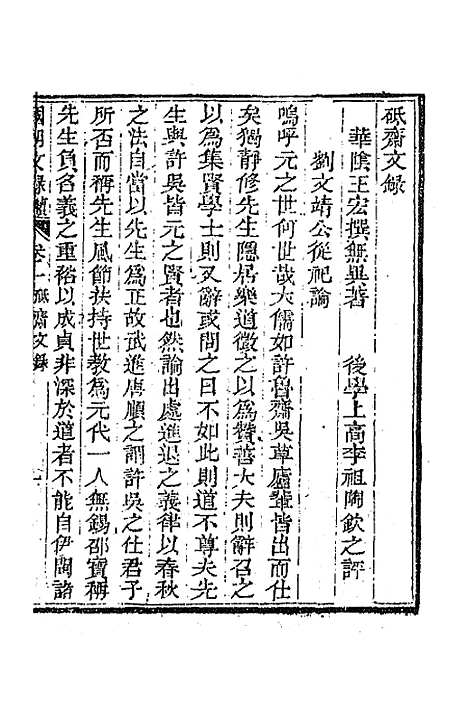 砥齋文録
華陰王宏撰無異著　後學上高李祖陶欽之評
劉文靖公從祀論
嗚呼元之世何世哉大儒如許魯齋吳草廬輩皆出而仕
矣獨靜修先生隱居樂道徵之以爲贊善大夫則辭召之
以爲集賢學士則又辭或問之曰不如此則道不尊夫先
生與許吳皆元之賢者也然論出處進退之義律以春秋
之法自當以先生爲正故武進唐順之謂許吳之仕君子
所否而稱先生風節扶持世教爲元代一人無錫邵寶稱
先生負名義之重裕以成貞非深於道者不能自伊閩諸
國朝文録續　卷一砥齋文録　一